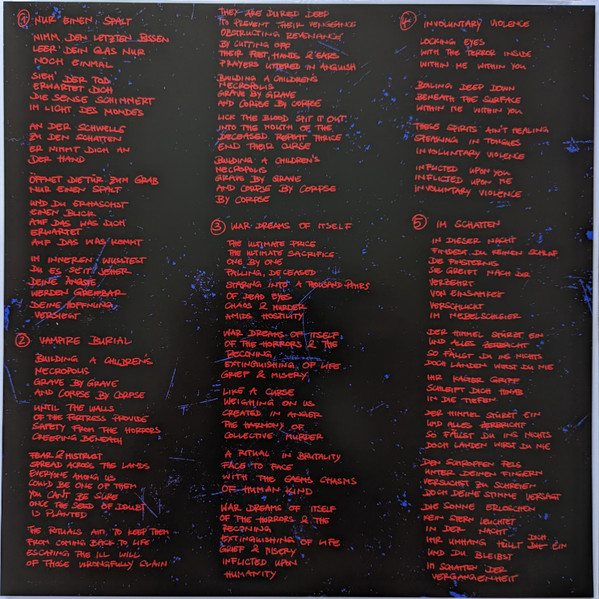 ① NUR EINEN SPALT
NIMM DEN LETZTEN BISSEN
LEER' DEIN GLAS NUR
NOCH EINMAL
SIEH' DER TOD
ERWARTET DICH
DIE SENSE SCHIMMERT
IM LICHT DES MONDES
AN DER SCHWELLE
ZU DEN SCHATTEN
ER NIMMT DICH AN
DER HAND
ÖFFNET DIE TÜR ZUM GRAB
NUR EINEN SPALT
UND DU ERHASCHST
EINEN BLICK
AUF DAS WAS DICH
ERWARTET
AUF DAS WAS KOMMT
IM INNEREN WUSSTEST
DU ES SEIT JEHER
DEINE ÄNGSTE
WERDEN GREIFBAR
DEINE HOFFNUNG
VERSIEGT
② VAMPIRE BURIAL
BUILDING A CHILDREN'S
NECROPOLIS
GRAVE BY GRAVE
AND CORPSE BY CORPSE
UNTIL THE WALLS
OF THE FORTRESS PROVIDE
SAFETY FROM THE HORRORS
CREEPING BENEATH
FEAR & MISTRUST
SPREAD ACROSS THE LANDS
EVERYONE AMONG US
COULD BE ONE OF THEM
YOU CAN'T BE SURE
ONCE THE SEED OF DOUBT
IS PLANTED
THE RITUALS AIM, TO KEEP THEM
FROM COMING BACK TO LIFE
ESCAPING THE ILL WILL
OF THOSE WRONGFULLY SLAIN
THEY ARE BURIED DEEP
TO PREVENT THEIR VENGEANCE
OBSTRUCTING REVENANCE
BY CUTTING OFF
THEIR FEET, HANDS & EARS
PRAYERS UTTERED IN ANGUISH
BUILDING A CHILDREN'S
NECROPOLIS
GRAVE BY GRAVE
AND CORPSE BY CORPSE
LICK THE BLOOD SPIT IT OUT
INTO THE MOUTH OF THE
DECEASED REPEAT THRICE
END THEIR CURSE
BUILDING A CHILDREN'S
NECROPOLIS
GRAVE BY GRAVE
AND CORPSE BY CORPSE
BY CORPSE
③ WAR DREAMS OF ITSELF
THE ULTIMATE PRICE
THE ULTIMATE SACRIFICE
ONE BY ONE
FALLING, DECEASED
STARING INTO A THOUSAND PAIRS
OF DEAD EYES
CHAOS & MURDER
AMIDS HOSTILITY
WAR DREAMS OF ITSELF
OF THE HORRORS & THE
BECOMING
EXTINGUISHING OF LIFE
GRIEF & MISERY
LIKE A CURSE
WEIGHING ON US
CREATED IN ANGER
THE HARMONY OF
COLLECTIVE MURDER
A RITUAL IN BRUTALITY
FACE TO FACE
WITH THE CHASMS
OF HUMAN KIND
WAR DREAMS OF ITSELF
OF THE HORRORS & THE
BECOMING
EXTINGUISHING OF LIFE
GRIEF & MISERY
INFLICTED UPON
HUMANITY
④ INVOLUNTARY VIOLENCE
LOCKING EYES
WITH THE TERROR INSIDE
WITHIN ME WITHIN YOU
BOILING DEEP DOWN
BENEATH THE SURFACE
WITHIN ME WITHIN YOU
THESE SPIRITS AIN'T HEALING
SPEAKING IN TONGUES
INVOLUNTARY VIOLENCE
INFLICTED UPON YOU
INFLICTED UPON ME
INVOLUNTARY VIOLENCE
⑤ IM SCHATTEN
IN DIESER NACHT
FINDEST DU KEINEN SCHLAF
DIE FINSTERNIS
SIE GREIFT NACH DIR
VERZEHRT
VON EINSAMKEIT
VERSCHLUCKT
IM NEBELSCHLEIER
DER HIMMEL STÜRZT EIN
UND ALLES ZERBRICHT
SO FÄLLST DU INS NICHTS
DOCH LANDEN WIRST DU NIE
IHR KALTER GRIFF
SCHLEIFT DICH HINAB
IN DIE TIEFEN
DER HIMMEL STÜRZT EIN
UND ALLES ZERBRICHT
SO FÄLLST DU INS NICHTS
DOCH LANDEN WIRST DU NIE
DEN SCHROFFEN FELS
UNTER DEINEN FINGERN
VERSUCHST ZU SCHREIEN
DOCH DEINE STIMME VERSAGT
DIE SONNE ERLOSCHEN
KEIN STERN LEUCHTET
IN DER NACHT
IHR UMHANG HÜLLT DICH EIN
UND DU BLEIBST
IM SCHATTEN DER
VERGANGENHEIT